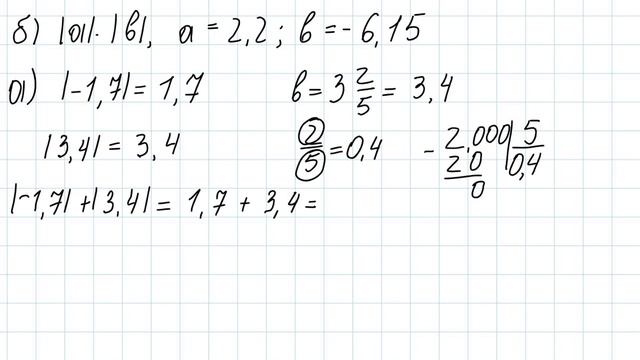 б) |a|·|в|, a = 2,2; в = -6,15
a) |-1,7| = 1,7 в = 3 2/5 = 3,4
|3,4| = 3,4 2/5 = 0,4 - 2,000 | 5
20 0,4
0
|-1,7| + |3,4| = 1,7 + 3,4 =